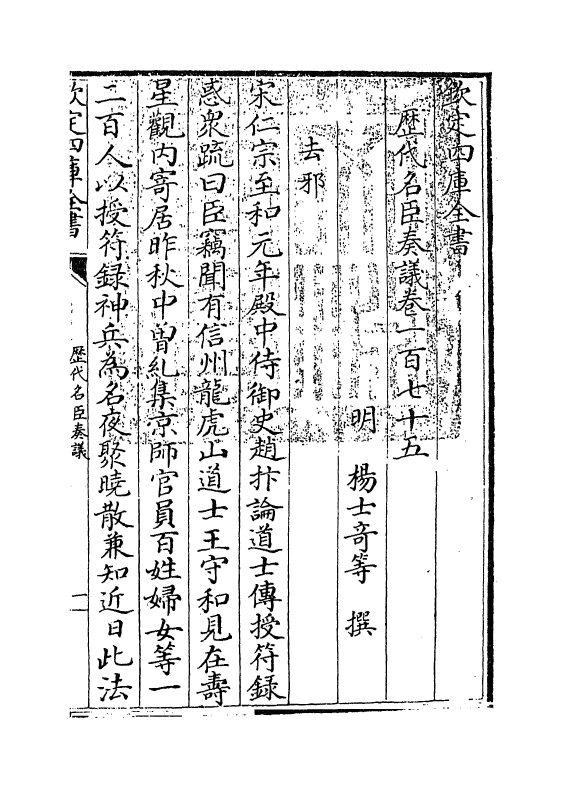 欽定四庫全書
歷代名臣奏議卷一百七十五
明 楊士竒等 撰
去邪
宋仁宗至和元年殿中侍御史趙抃論道士傳授符録
惑衆疏曰臣竊聞有信州龍虎山道士王守和見在壽
星觀内寄居昨秋中曽糺集京師官員百姓婦女等一
二百人以授符録神兵為名夜聚曉散兼知近日此法
欽定四庫全書
歷代名臣奏議